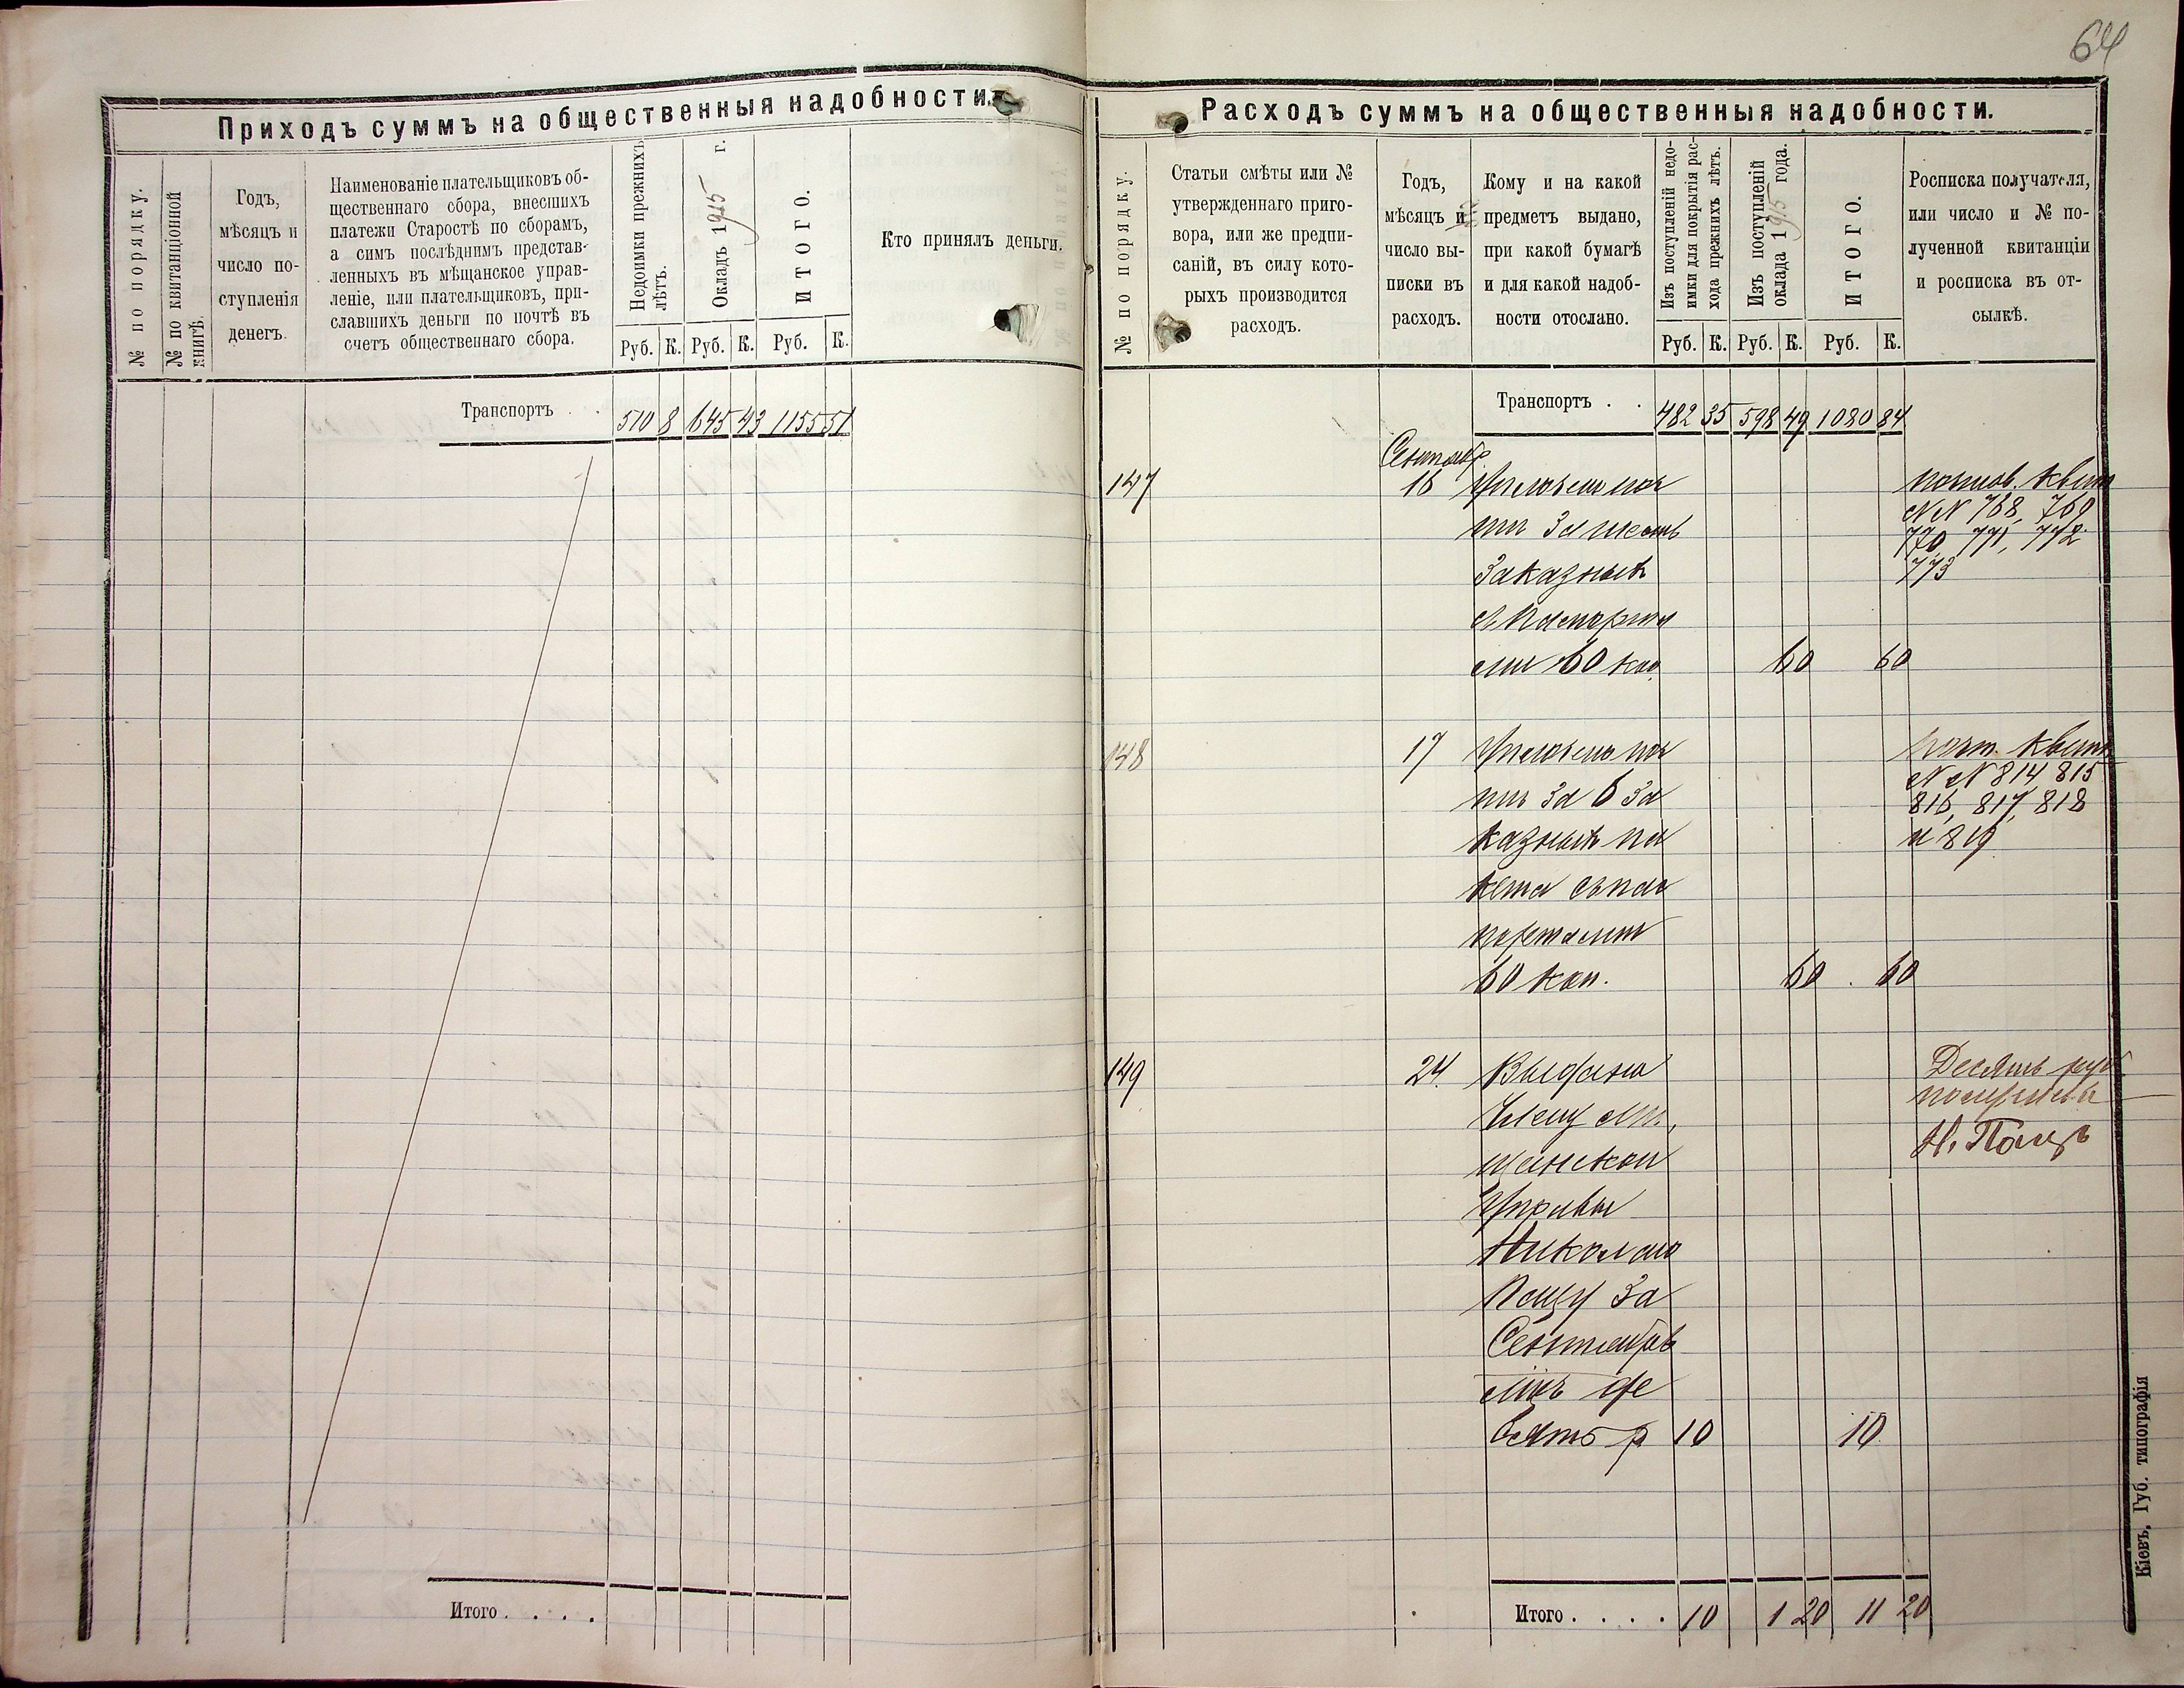 64
Приходъ суммъ на общественныя надобности.
№ по порядку.
№ по квитанціонной
книгѣ.
Годъ,
мѣсяцъ и
число по-
ступленія
денегъ.
Наименованіе плательщиковъ об-
щественнаго сбора, внесшихъ
платежи Старостѣ по сборамъ,
а симъ послѣднимъ представ-
ленныхъ въ мѣщанское управ-
леніе, или плательщиковъ, при-
славшихъ деньги по почтѣ въ
счетъ общественнаго сбора.
Недоимки прежнихъ
лѣтъ.
Окладъ 1915 г.
ИТОГО.
Кто принялъ деньги.
Руб. К. Руб. К. Руб. К.
Транспортъ . . 510 8 645 43 1155 51
Итого . . . .
Расходъ суммъ на общественныя надобности.
№ по порядку.
Статьи смѣты или №
утвержденнаго приго-
вора, или же предпи-
саній, въ силу кото-
рыхъ производится
расходъ.
Годъ,
мѣсяцъ и
число вы-
писки въ
расходъ.
Кому и на какой
предметъ выдано,
при какой бумагѣ
и для какой надоб-
ности отослано.
Изъ поступленій недо-
имки для покрытія рас-
хода прежнихъ лѣтъ.
Изъ поступленій
оклада 1915 года.
ИТОГО.
Росписка получателя,
или число и № по-
лученной квитанціи
и росписка въ от-
сылкѣ.
Руб. К. Руб. К. Руб. К.
Транспортъ . . 482 35 598 49 1080 84
147 16 за шесть
заказныхъ
60 коп. 60 60
NN 768, 769
770, 771, 772
773
148 17
за 6 за
казныхъ па
кета съ пас
портами
60 коп. 60 60
почт. квит
NN 814 815
816, 817, 818
и 819
149 24. Выдано
Члену Мѣ
щанской
Управы
Николаю
Пащу за
Сентябрь
мцъ де
сять р 10 10
Десять руб
получилъ
Н. Пащъ
Итого . . . . 10 1 20 11 20
Кіевъ, Губ. типографія